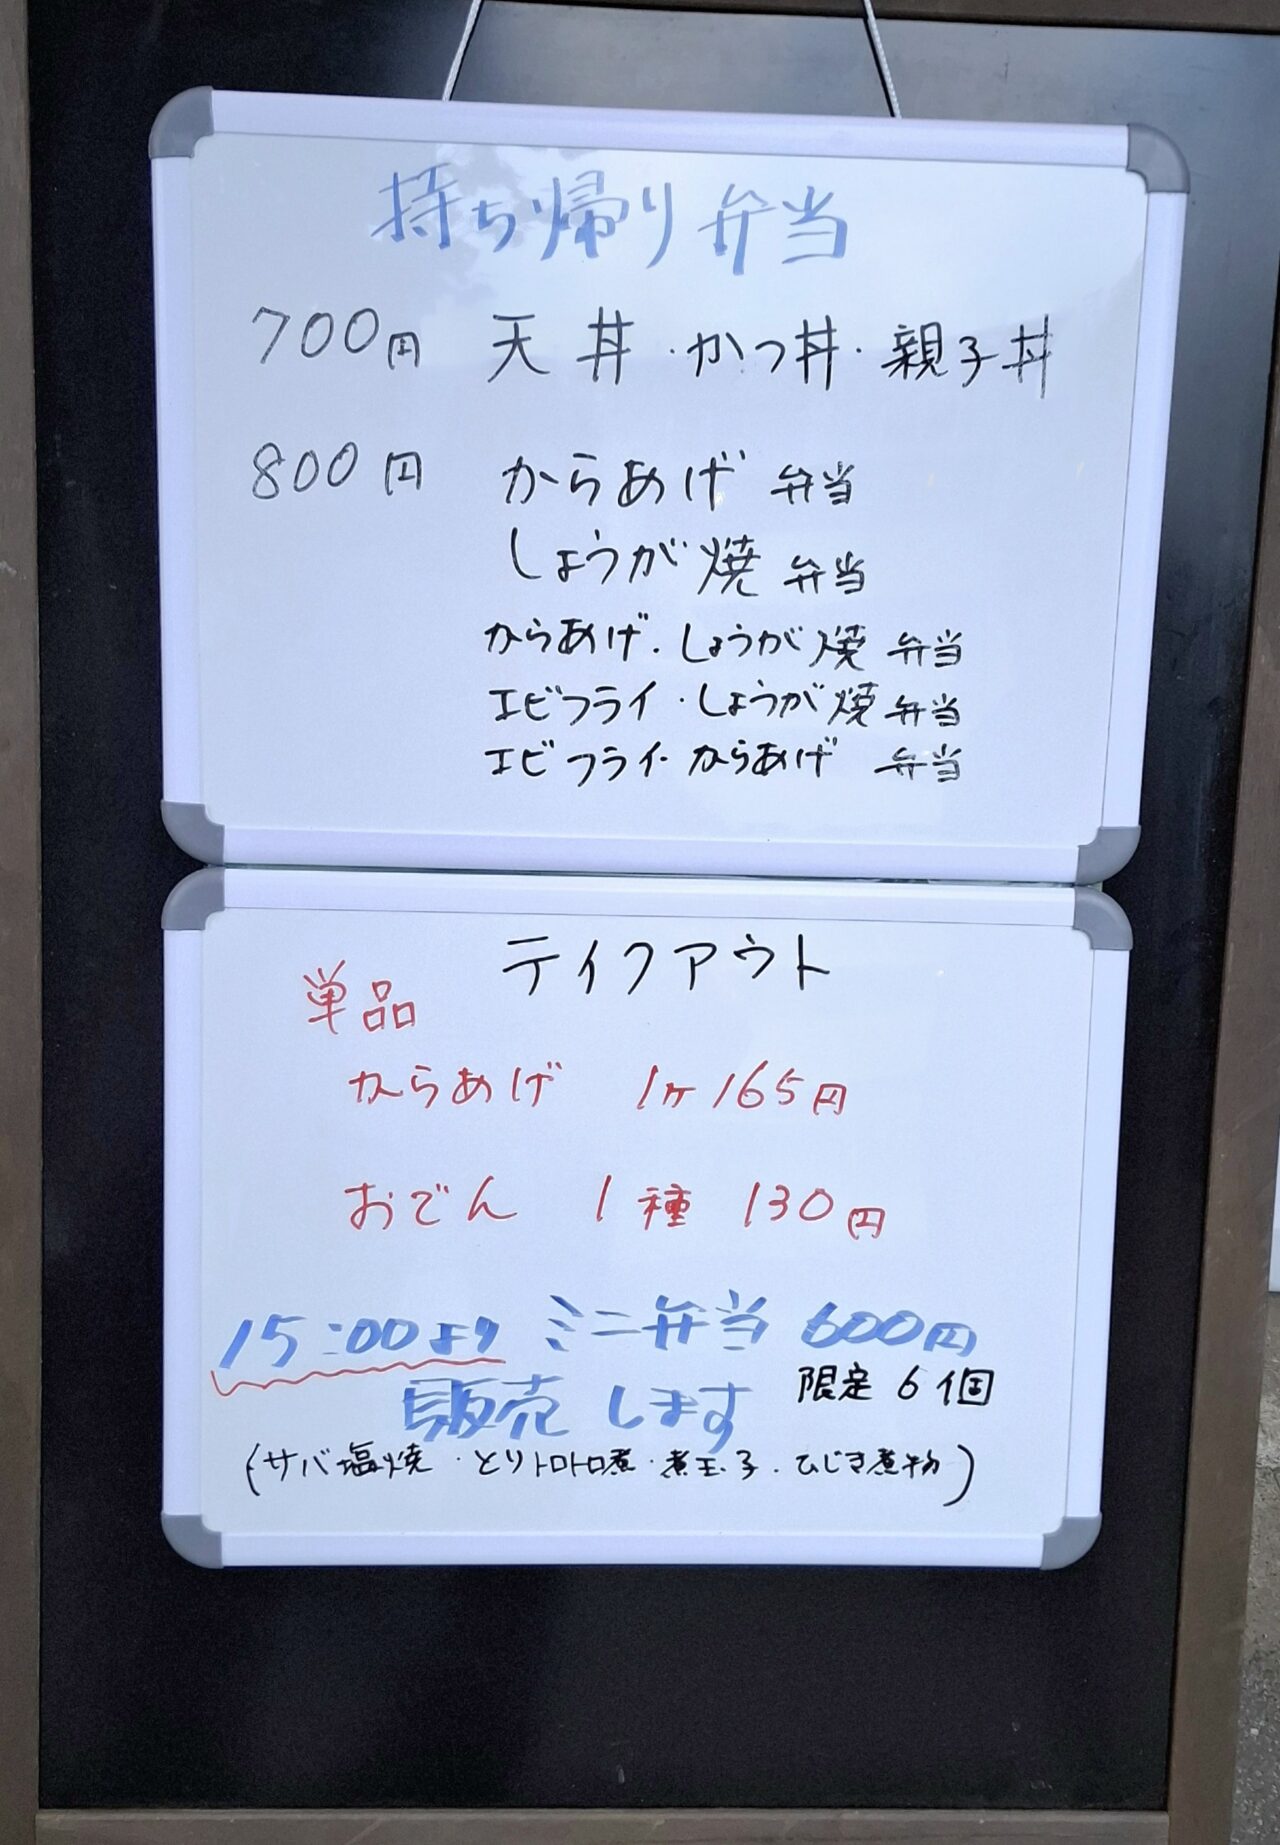 持ち帰り弁当
700円 天丼・かつ丼・親子丼
800円 からあげ弁当
しょうが焼弁当
からあげ・しょうが焼弁当
エビフライ・しょうが焼弁当
エビフライ・からあげ 弁当
テイクアウト
単品
からあげ 1ヶ165円
おでん 1種 130円
15:00より ミニ弁当 600円
販売します 限定6個
(サバ塩焼・とりトロトロ煮・煮玉子・ひじき煮物)